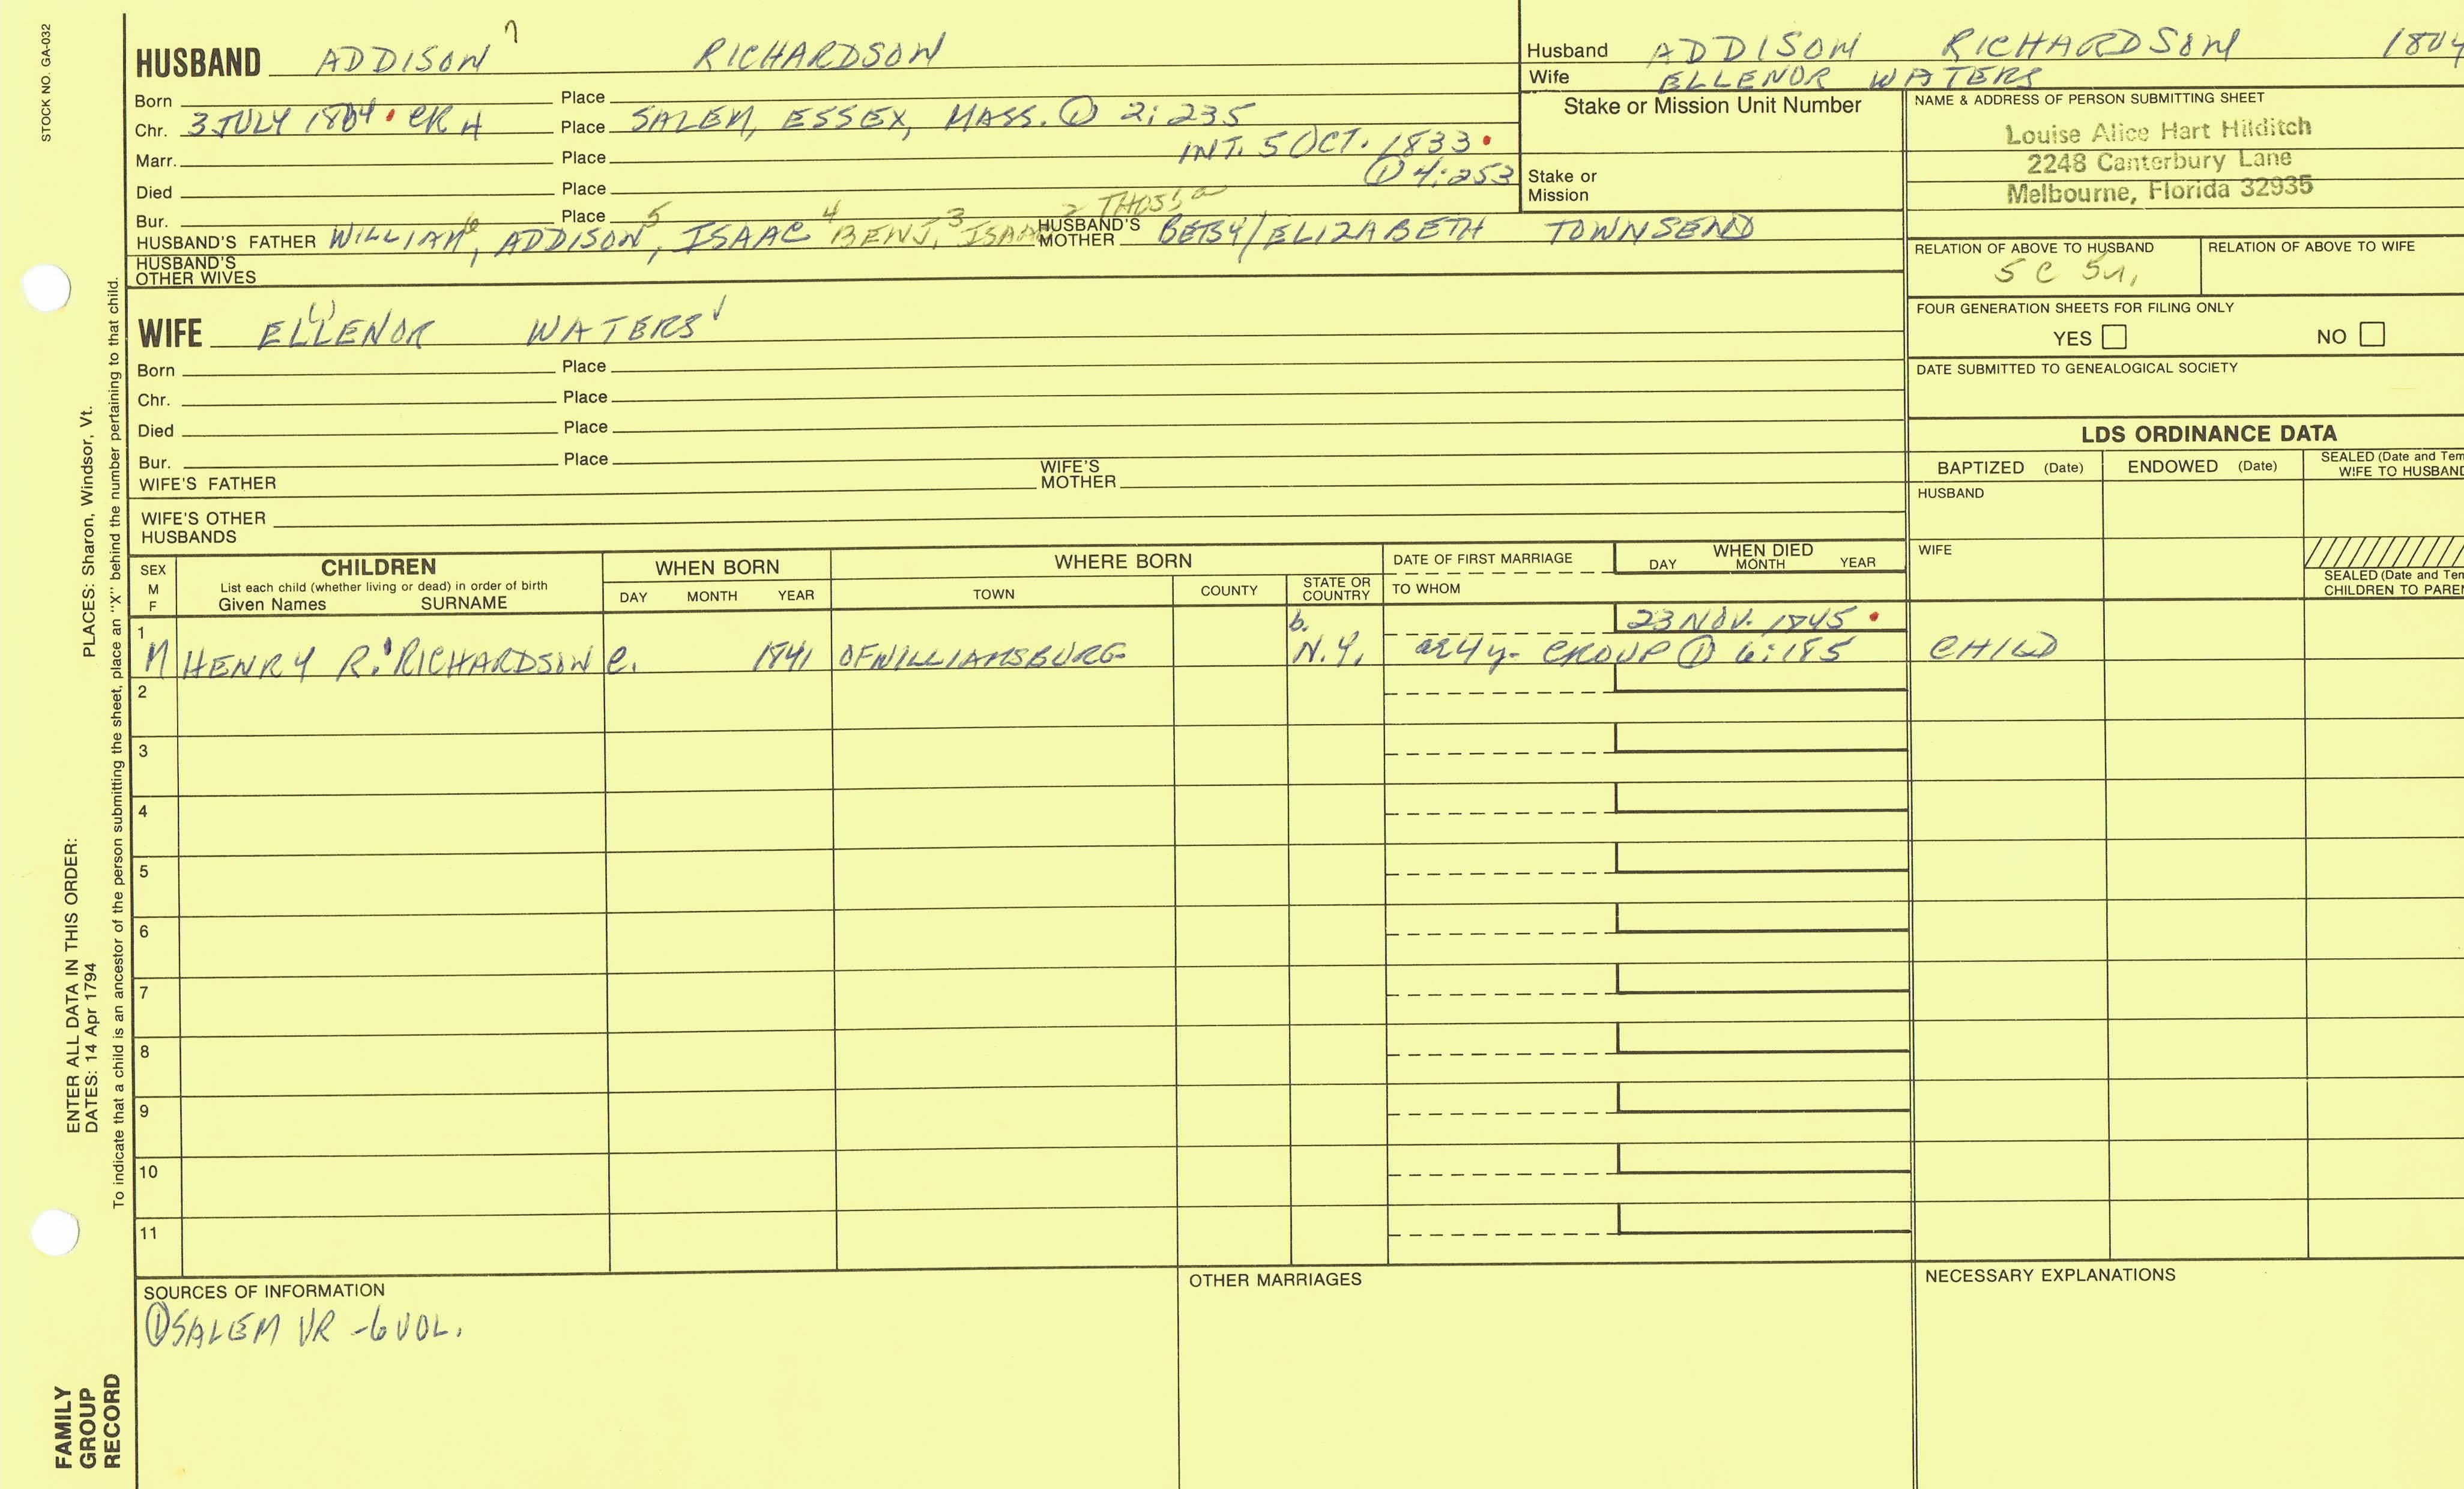 STOCK NO. GA-032
HUSBAND ADDISON 7 RICHARDSON
Born Place
Chr. 3 JULY 1804 · CR 4 Place SALEM, ESSEX, MASS. ① 2:235
Marr. Place INT. 5 OCT. 1833 ·
① 4:253
Died Place
Bur. Place
2 THOS
HUSBAND'S FATHER WILLIAM 6, ADDISON 5, ISAAC 4 BENJ, 3 ISAAC HUSBAND'S MOTHER BETSY/ELIZABETH TOWNSEND
HUSBAND'S OTHER WIVES
WIFE ELLENOR WATERS
Born Place
Chr. Place
Died Place
Bur. Place
WIFE'S FATHER WIFE'S MOTHER
WIFE'S OTHER HUSBANDS
Husband ADDISON RICHARDSON 1804
Wife ELLENOR WATERS
Stake or Mission Unit Number
Stake or Mission
NAME & ADDRESS OF PERSON SUBMITTING SHEET
Louise Alice Hart Hilditch
2248 Canterbury Lane
Melbourne, Florida 32935
RELATION OF ABOVE TO HUSBAND RELATION OF ABOVE TO WIFE
5 C
FOUR GENERATION SHEETS FOR FILING ONLY
YES NO
DATE SUBMITTED TO GENEALOGICAL SOCIETY
LDS ORDINANCE DATA
BAPTIZED (Date) ENDOWED (Date) SEALED (Date and Tem
WIFE TO HUSBAND
HUSBAND
WIFE
SEALED (Date and Tem
CHILDREN TO PAREN
SEX M F
CHILDREN
List each child (whether living or dead) in order of birth
Given Names SURNAME
WHEN BORN
DAY MONTH YEAR
WHERE BORN
TOWN COUNTY STATE OR COUNTRY
DATE OF FIRST MARRIAGE
TO WHOM
WHEN DIED
DAY MONTH YEAR
1 b. 23 NOV. 1845 ·
M HENRY R. RICHARDSON C. 1841 OF WILLIAMSBURG N.Y. ae 4 y. CROUP ① 6:185 CHILD
2
3
4
5
6
7
8
9
10
11
SOURCES OF INFORMATION
① SALEM VR -6 VOL.
OTHER MARRIAGES
NECESSARY EXPLANATIONS
ENTER ALL DATA IN THIS ORDER:
DATES: 14 Apr 1794 PLACES: Sharon, Windsor, Vt.
To indicate that a child is an ancestor of the person submitting the sheet, place an "X" behind the number pertaining to that child.
FAMILY
GROUP
RECORD